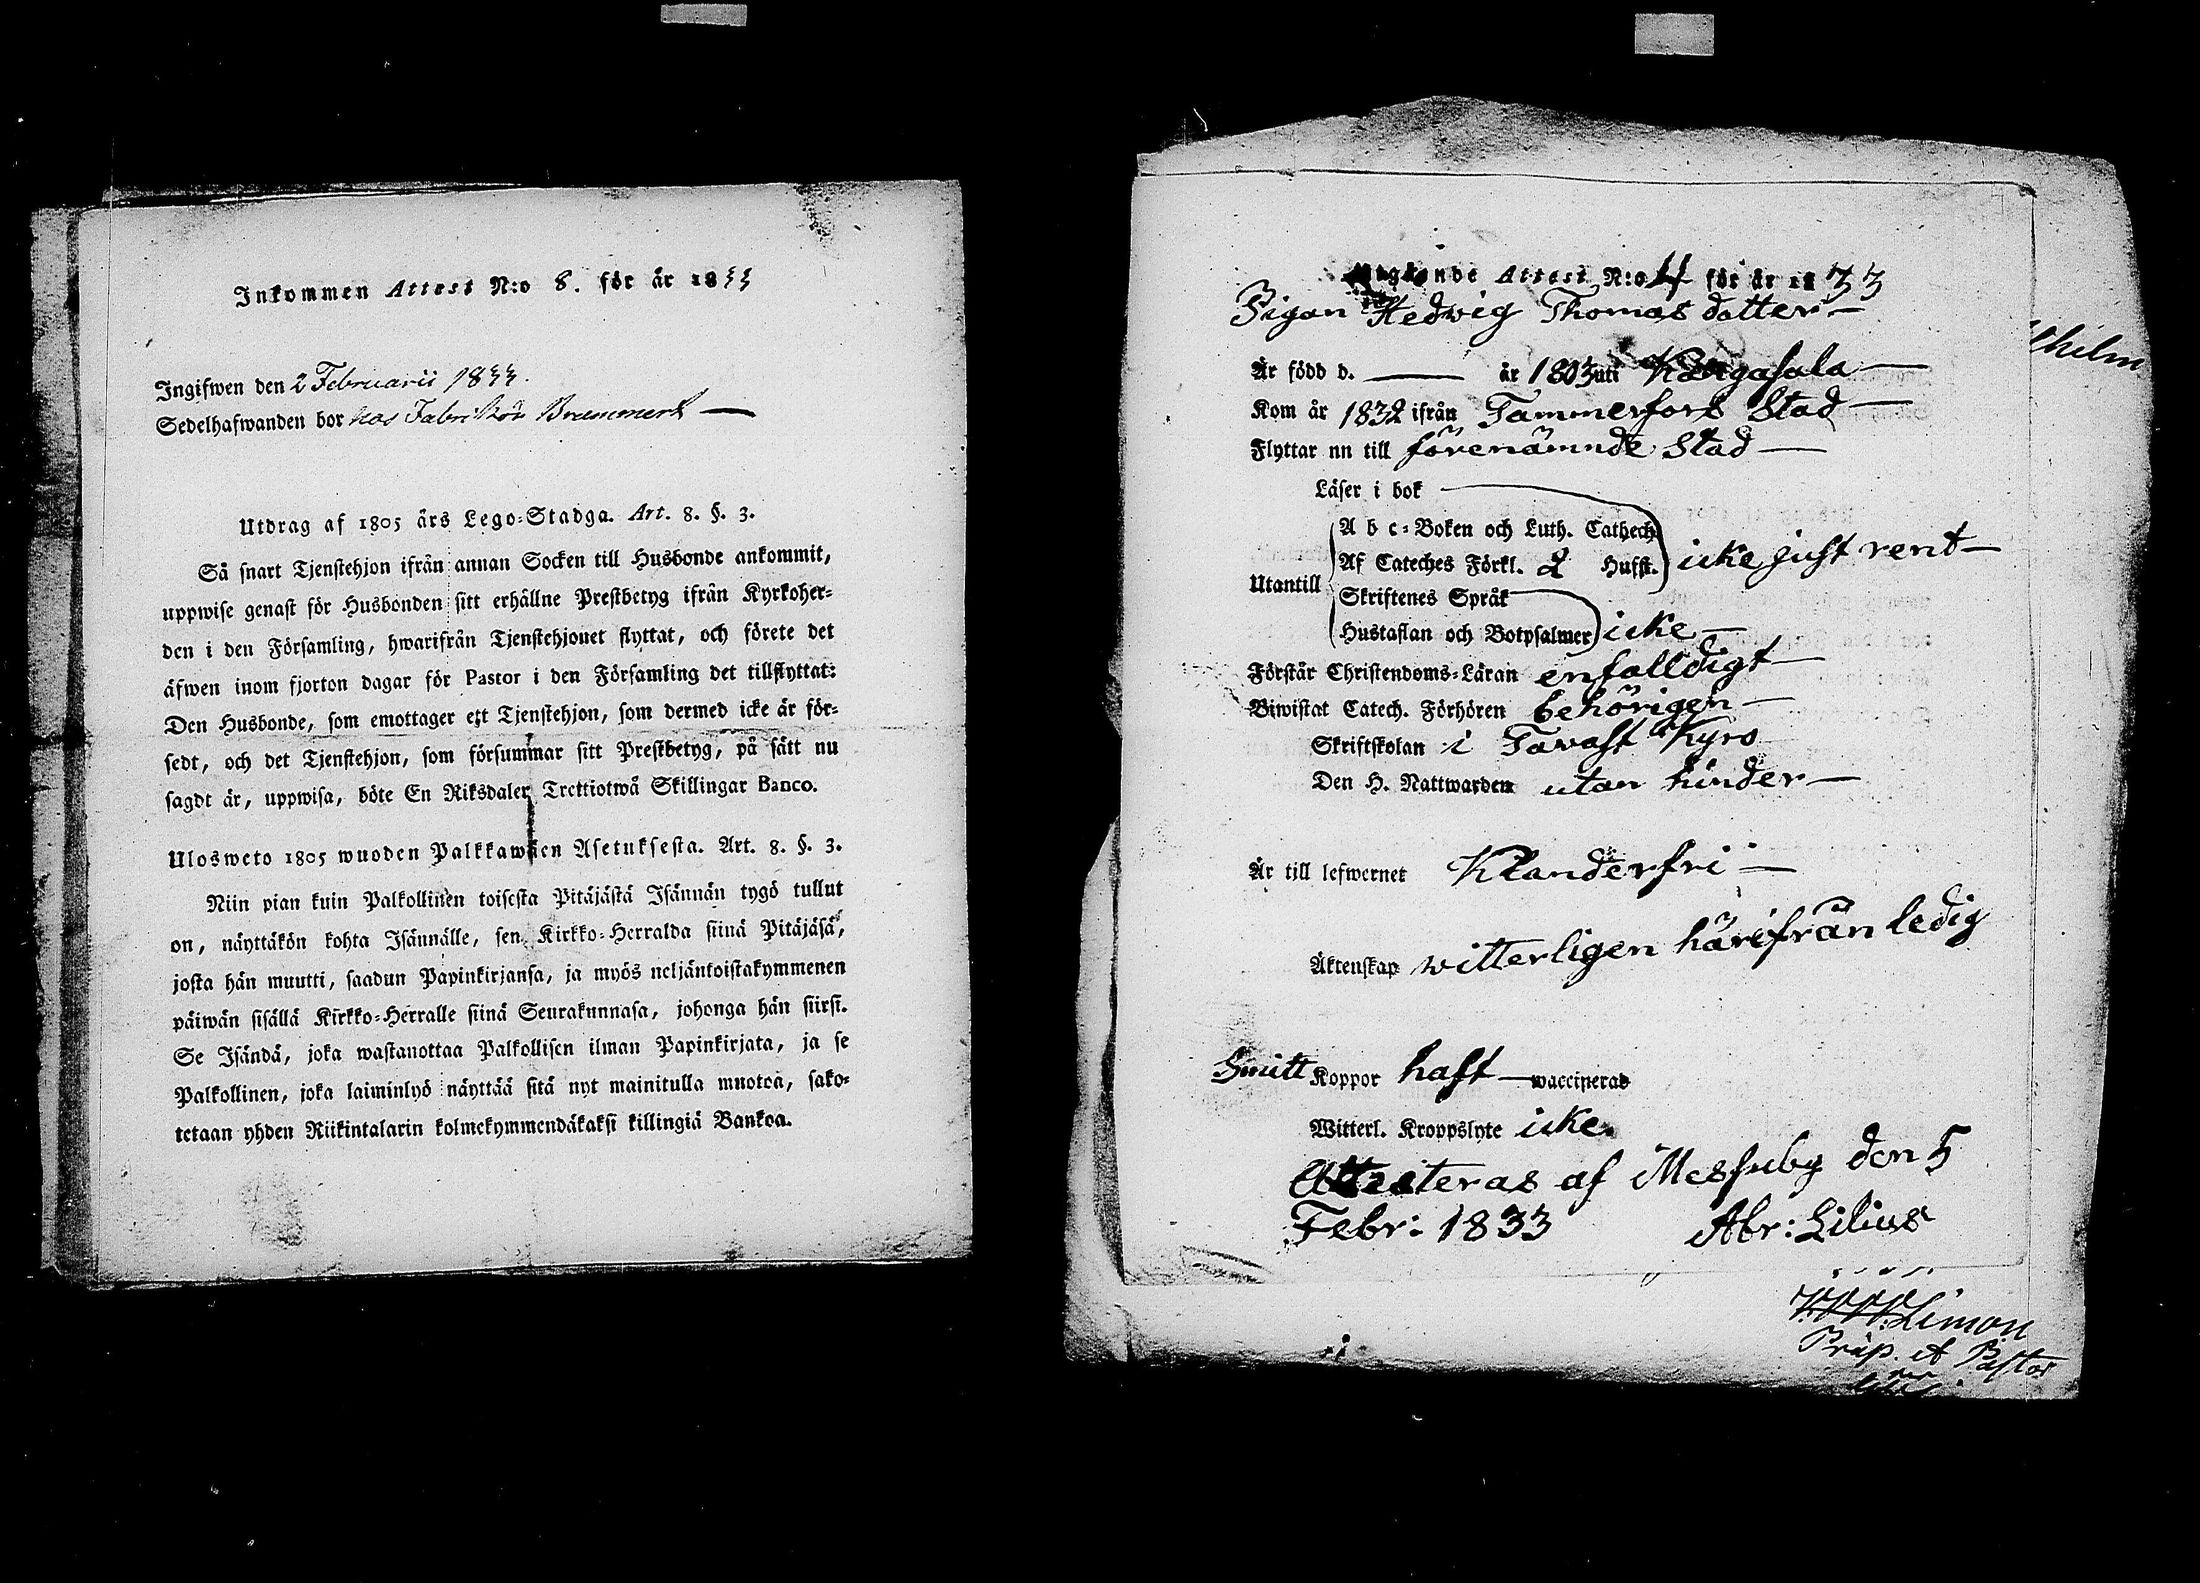 Inkommen Attest N:o 8. för år 1833
Ingifwen den 2 Februarii 1833.
Sedelhafwanden bor hos Fabrikör Bremmert —
Utdrag af 1805 års Lego-Stadga. Art. 8. §. 3.
Så snart Tjenstehjon ifrån annan Socken till Husbonde ankommit,
uppwise genast för Husbonden sitt erhållne Prestbetyg ifrån Kyrkoher-
den i den Församling, hwarifrån Tjenstehjonet flyttat, och förete det
äfwen inom fjorton dagar för Pastor i den Församling det tillflyttat:
Den Husbonde, som emottager ett Tjenstehjon, som dermed icke är för-
sedt, och det Tjenstehjon, som försummar sitt Prestbetyg, på sätt nu
sagdt är, uppwisa, böte En Riksdaler Trettiotwå Skillingar Banco.
Ulosweto 1805 wuoden Palkkawäen Asetuksesta. Art. 8. §. 3.
Niin pian kuin Palkollinen toisesta Pitäjästä Isännän tygö tullut
on, näyttäkön kohta Isännälle, sen Kirkko-Herralda siinä Pitäjäsä,
josta hän muutti, saadun Papinkirjansa, ja myös neljäntoistakymmenen
päiwän sisällä Kirkko-Herralle siinä Seurakunnasa, johonga hän siirsi.
Se Isändä, joka wastanottaa Palkollisen ilman Papinkirjata, ja se
Palkollinen, joka laiminlyö näyttää sitä nyt mainitulla muotoa, sako-
tetaan yhden Riikintalarin kolmekymmendäkaksi killingiä Bankoa.
Utgående Attest N:o 4 för år 1833
Pigan Hedwig Thomas dotter —
Är född d. — år 1803 uti Kangasala —
Kom år 1832 ifrån Tammerfors Stad —
Flyttar nu till förenämnde Stad —
Läser i bok
A b c-Boken och Luth. Cathech
Af Cateches Förkl. 2 Husst. icke just rent —
Utantill
Skriftenes Språk
Hustaflan och Botpsalmer icke —
Förstår Christendoms-Läran enfalldigt —
Biwistat Catech. Förhören behörigen —
Skriftskolan i Tavast Kyro
Den H. Nattwarden utan hinder —
Är till lefwernet Klanderfri —
Äktenskap witterligen härifrån ledig
Smitt Koppor haft — waccinerad
Witterl. Kroppslyte icke.
Attesteras af Messuby den 5
Febr: 1833 Abr: Lilius
Limon
Präp. et Pastor